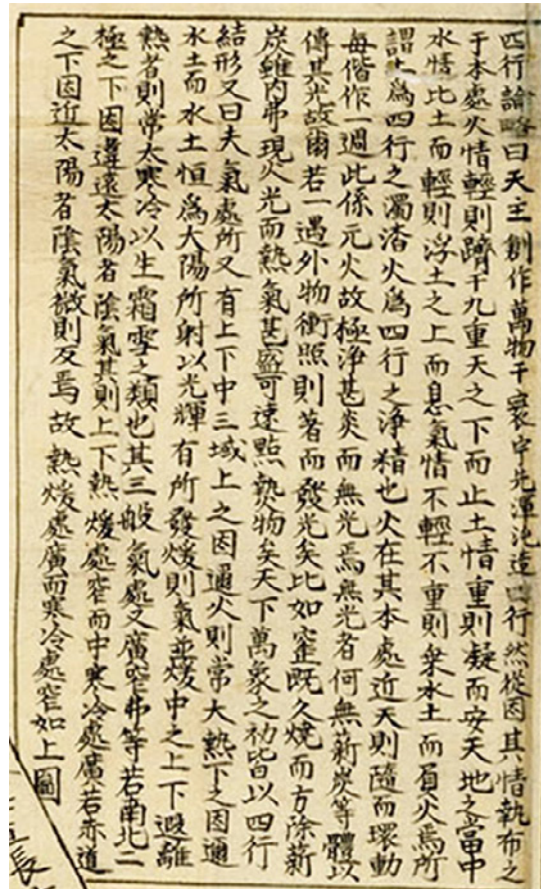 四行論略曰天主創作萬物于寰宇先渾沌造四行然從因其情執布之
于本處火情輕則躋于九重天之下而止土情重則凝而安天地之當中
水情比土而輕則浮土之上而息氣情不輕不重則乘水土而負火焉所
謂土爲四行之濁渣火爲四行之淨精也火在其本處近天則隨而環動
每偕作一週此係元火故極淨甚炎而無光焉無光者何無薪炭等體以
傳其光故爾若一遇外物衝照則著而發光矣比如窑既久燒而方除薪
炭雖内弗現火光而熱氣甚盛可速點熱物矣天下萬象之初皆以四行
結形又曰夫氣處所又有上下中三域上之因邇火則常大熱下之因邇
水土而水土恒爲大陽所射以光輝有所發煖則氣並煖中之上下遐離
熱者則常太寒冷以生霜雪之類也其三般氣處又廣窄弗等若南北二
極之下因違遠太陽者陰氣甚則上下熱煖處窄而中寒冷處廣若赤道
之下因近太陽者陰氣微則反焉故熱煖處廣而寒冷處窄如上圖
長